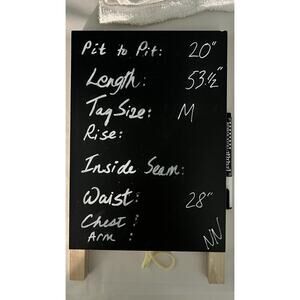 Pit to Pit: 20"
Length: 53½"
Tag Size: M
Rise:
Inside Seam:
Waist: 28"
Chest:
Arm: